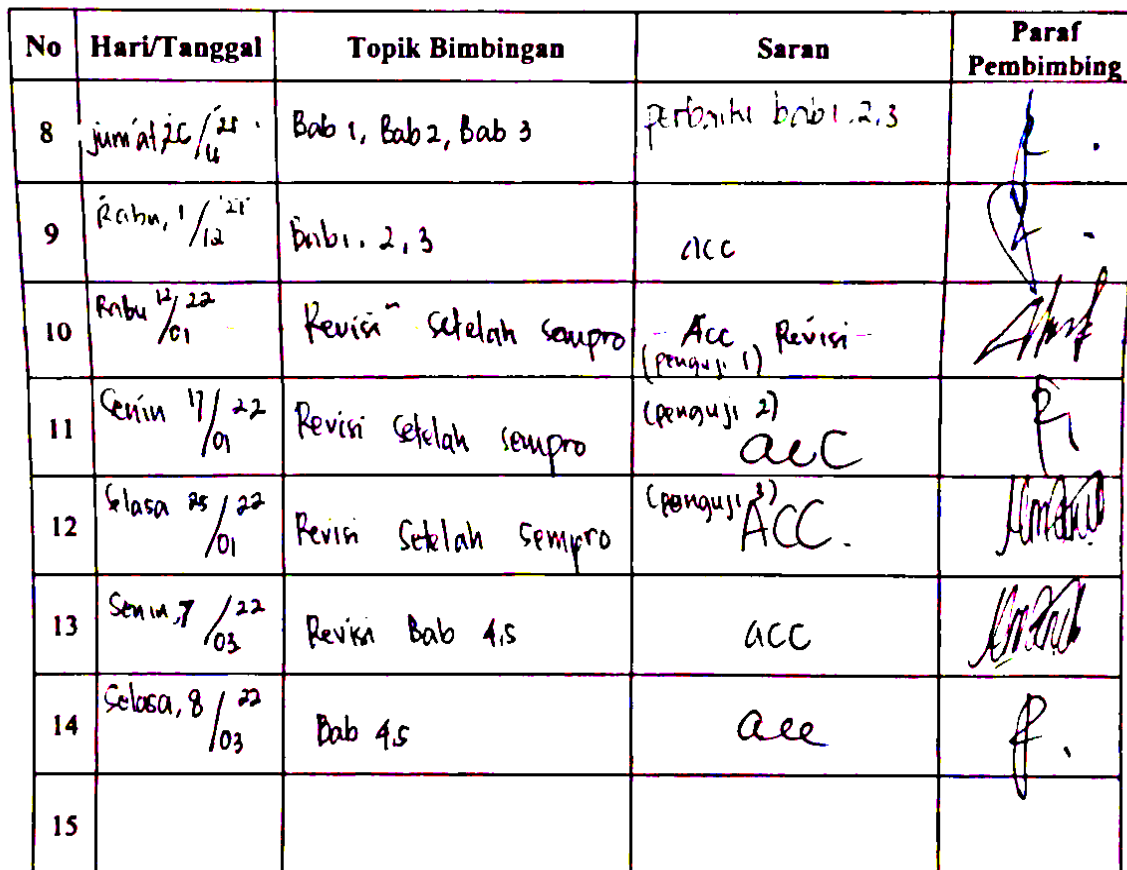 No Hari/Tanggal Topik Bimbingan Saran Paraf Pembimbing
8 jum'at, 26/11 '21 Bab 1, Bab 2, Bab 3 perbaiki bab 1. 2, 3
9 Rabu, 1/12 '21 Bab 1. 2, 3 acc
10 Rabu 12/01 22 Revisi setelah sempro - Acc Revisi -
(penguji 1)
11 Senin 17/01 22 Revisi setelah sempro (penguji 2)
acc
12 Selasa 25/01 22 Revisi setelah sempro (penguji 3)
ACC.
13 Senin, 7/03 22 Revisi Bab 4,5 acc
14 Selasa, 8/03 22 Bab 4,5 acc
15